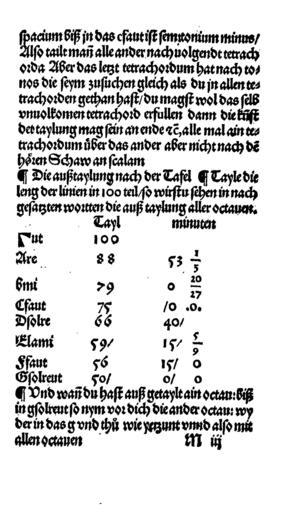 spacium biß in das cfaut ist semitonium minus/
Also tailt man̄ alle ander nach uolgende tetrach
orda Aber das letzt tetrachordum hat nach to⸗
nos die seym zusuchen gleich als du in allen te⸗
trachorden gethan hast/du magst wol das selb
vnuolkomen tetrachord erfullen dann die kūst
der taylung mag sein an ende ⁊c̄, alle mal ain te⸗
trachordum über das ander aber nicht nach dē
hören Schaw an scalam
¶ Die außtaylung nach der Tafel ¶ Tayle die
leng der linien in 100 teil/so wirstu sehen in nach
gesatzten wortten die auß taylung aller octauen.
Tayl minuten
Γut 100
Are 88 53 1/5
bmi 79 0 20/27
Cfaut 75 /0 .0.
Dsolre 66 40/
Elami 59/ 15/ 5/9
Ffaut 56 15/ 0
Gsolreut 50/ 0/ 0
¶ Und wan̄ du hast auß getaylt ain octau: biß
in gsolreut so nym vor dich die ander octau: wy
der in das g vnd thů wie yetzunt vnnd also mit
allen octauen M iij